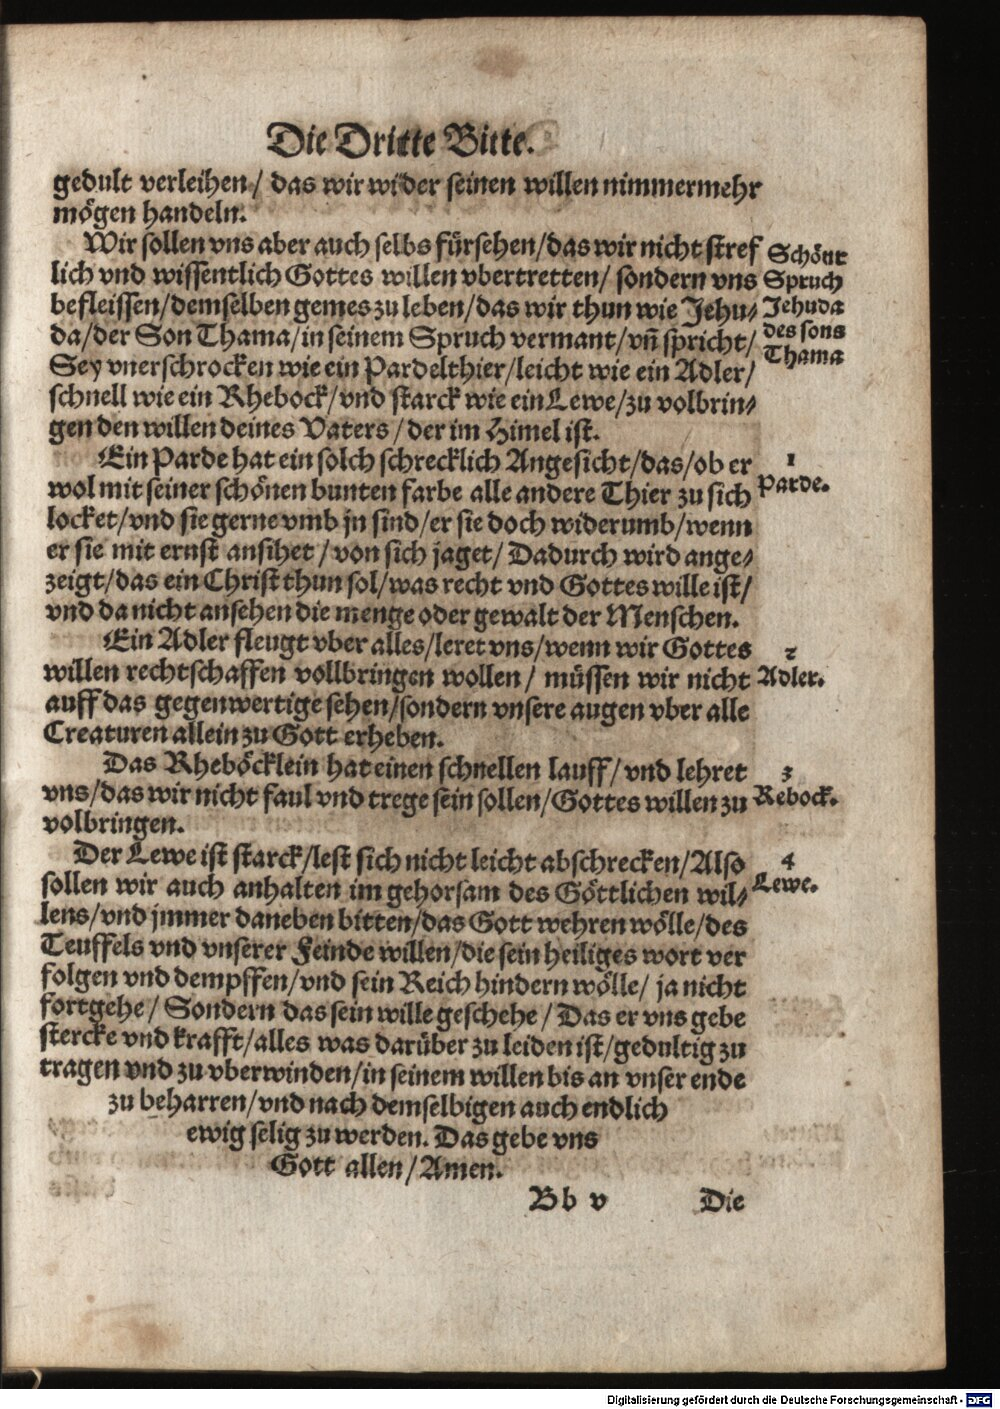 Die Dritte Bitte.
gedult verleihen/ das wir wider seinen willen nimmermehr
mögen handeln.
Wir sollen vns aber auch selbs fürsehen/das wir nicht stref
lich vnd wissentlich Gottes willen vbertretten/ sondern vns
befleissen/demselben gemes zu leben/das wir thun wie Jehu⸗
da/der Son Thama/in seinem Spruch vermant/vñ spricht/
Sey vnerschrocken wie ein Pardelthier/leicht wie ein Adler/
schnell wie ein Rhebock/vnd starck wie ein Lewe/zu volbrin⸗
gen den willen deines Vaters/der im Himel ist.
Schöner
Spruch
Jehuda
des sons
Thama
Ein Parde hat ein solch schrecklich Angesicht/das/ob er
wol mit seiner schönen bunten farbe alle andere Thier zu sich
locket/vnd sie gerne vmb jn sind/er sie doch widerumb/wenn
er sie mit ernst ansihet/von sich jaget/Dadurch wird ange⸗
zeigt/das ein Christ thun sol/was recht vnd Gottes wille ist/
vnd da nicht ansehen die menge oder gewalt der Menschen.
1
Parde.
Ein Adler fleugt vber alles/leret vns/wenn wir Gottes
willen rechtschaffen vollbringen wollen/ müssen wir nicht
auff das gegenwertige sehen/sondern vnsere augen vber alle
Creaturen allein zu Gott erheben.
2
Adler.
Das Rheböcklein hat einen schnellen lauff/vnd lehret
vns/das wir nicht faul vnd trege sein sollen/Gottes willen zu
volbringen.
3
Rebock.
Der Lewe ist starck/lest sich nicht leicht abschrecken/Also
sollen wir auch anhalten im gehorsam des Göttlichen wil⸗
lens/vnd jmmer daneben bitten/das Gott wehren wölle/des
Teuffels vnd vnserer Feinde willen/die sein heiliges wort ver
folgen vnd dempffen/vnd sein Reich hindern wölle/ ja nicht
fortgehe/ Sondern das sein wille geschehe/Das er vns gebe
stercke vnd krafft/alles was darüber zu leiden ist/gedultig zu
tragen vnd zu vberwinden/in seinem willen bis an vnser ende
zu beharren/vnd nach demselbigen auch endlich
ewig selig zu werden. Das gebe vns
Gott allen/Amen.
4
Lewe.
Bb v Die
Digitalisierung gefördert durch die Deutsche Forschungsgemeinschaft - DFG